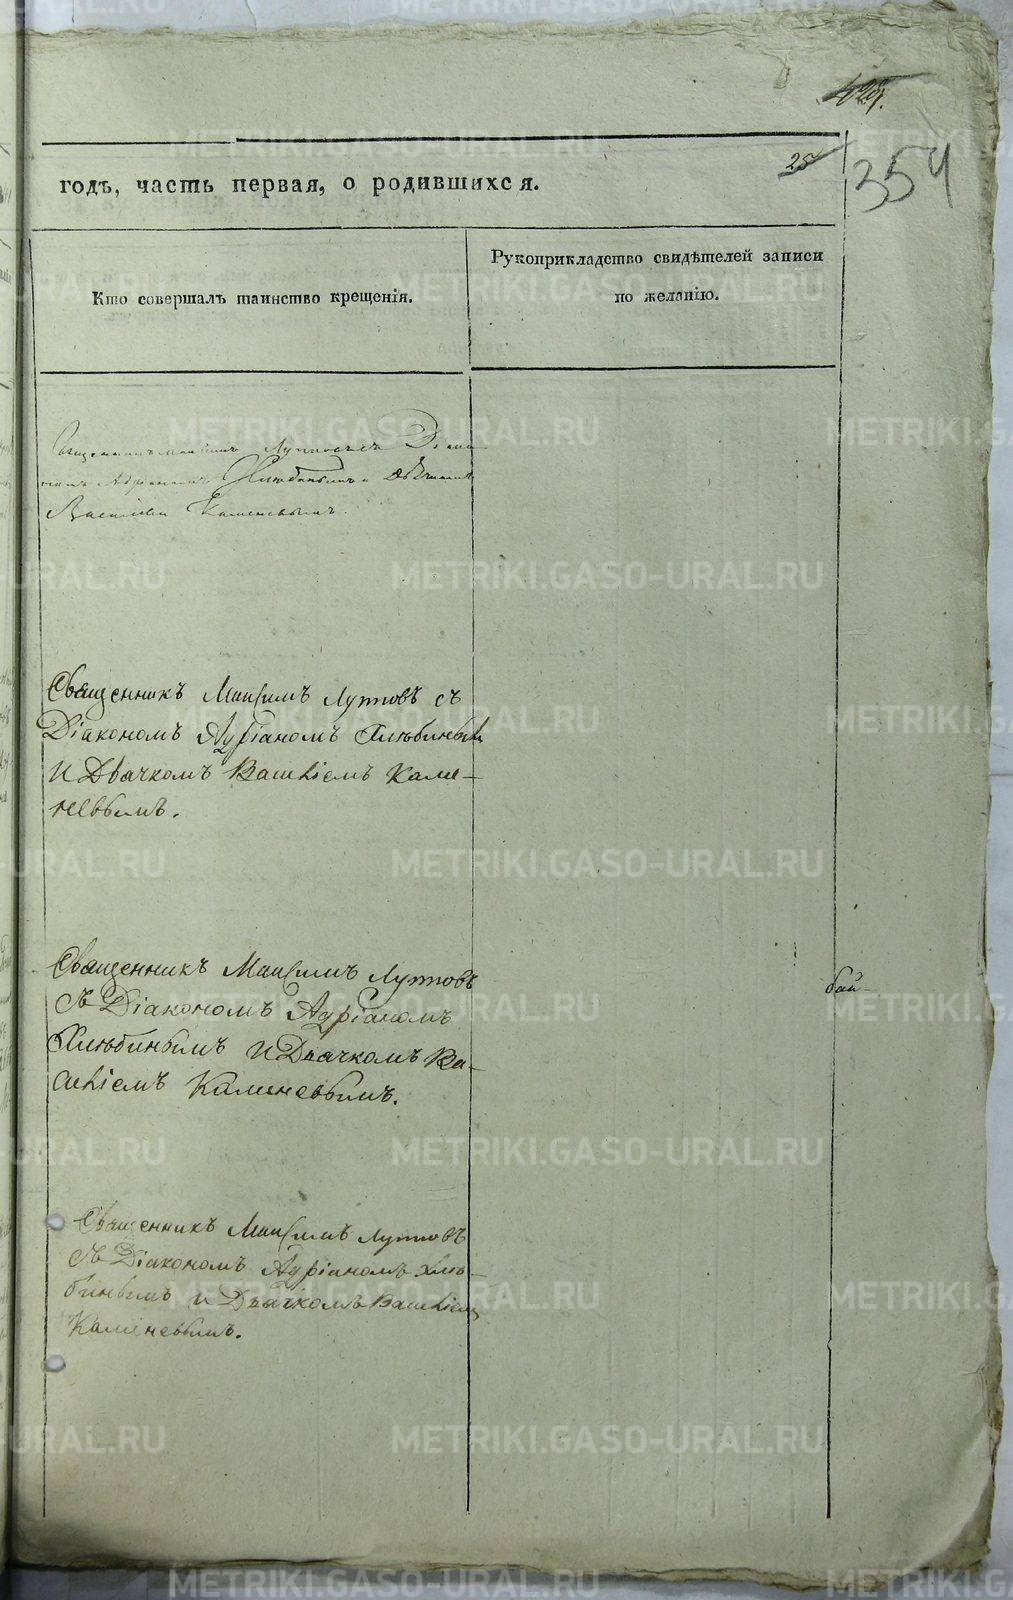 25
354
годъ, часть первая, о родившихся.
Кто совершалъ таинство крещенія.
Рукоприкладство свидѣтелей записи
по желанію.
Священникъ Максимъ Лупповъ съ Діако-
номъ Адріаномъ Хлюбинымъ и Дьячкомъ
Василіемъ Каменевымъ.
Священникъ Максимъ Лупповъ съ
Діакономъ Адріаномъ Хлюбинымъ
и Дьячкомъ Василіемъ Каме-
невымъ.
Священникъ Максимъ Лупповъ
съ Діакономъ Адріаномъ
Хлюбинымъ и Дьячкомъ Ва-
силіемъ Каменевымъ.
бай-
Священникъ Максимъ Лупповъ
съ Діакономъ Адріаномъ Хлю-
бинымъ и Дьячкомъ Василіемъ
Каменевымъ.
METRIKI.GASO-URAL.RU